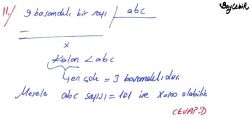 11.) 9 basamaklı bir sayı | abc
—
x
Kalan < abc
en çok = 3 basamaklıdır
Mesela abc sayısı = 101 ise x=100 olabilir
(CEVAP: D)